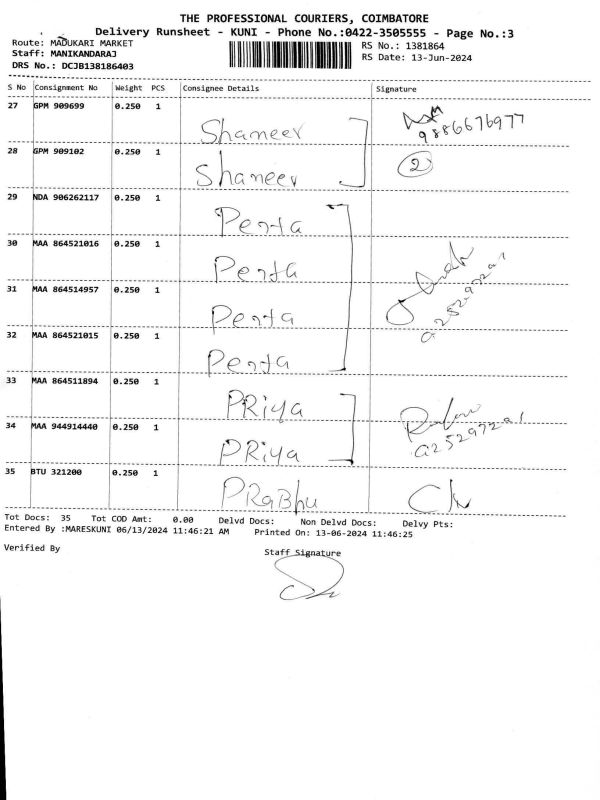 THE PROFESSIONAL COURIERS, COIMBATORE
Delivery Runsheet - KUNI - Phone No.:0422-3505555 - Page No.:3
Route: MADUKARI MARKET
RS No.: 1381864
Staff: MANIKANDARAJ
RS Date: 13-Jun-2024
DRS No.: DCJB138186403
S No Consignment No Weight PCS Consignee Details Signature
27 GPM 909699 0.250 1 Shameer
9886676977
28 GPM 909102 0.250 1 Shameer 2
29 NDA 906262117 0.250 1 Penta
30 MAA 864521016 0.250 1 Penta
31 MAA 864514957 0.250 1 Penta
32 MAA 864521015 0.250 1 Penta
33 MAA 864511894 0.250 1 PRiya
34 MAA 944914440 0.250 1 PRiya
35 BTU 321200 0.250 1 PRaBhu
Tot Docs: 35 Tot COD Amt: 0.00 Delvd Docs: Non Delvd Docs: Delvy Pts:
Entered By :MARESKUNI 06/13/2024 11:46:21 AM Printed On: 13-06-2024 11:46:25
Verified By
Staff Signature